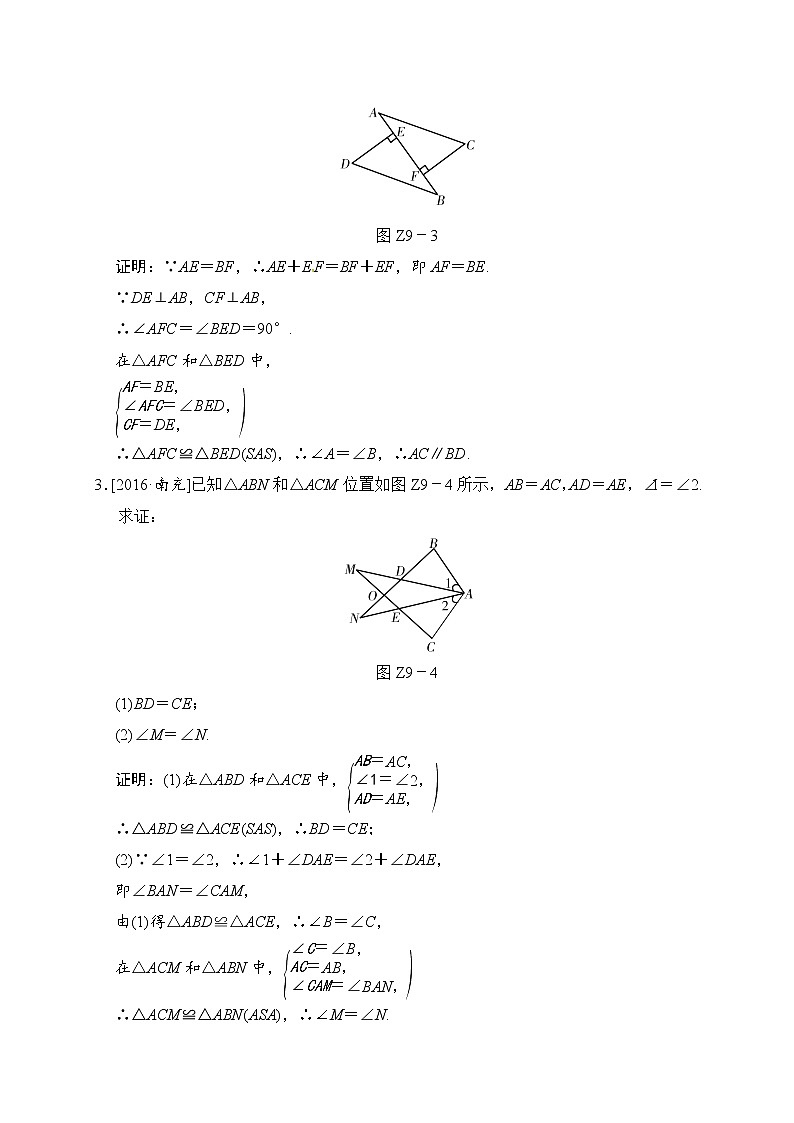 A
E
C
D
F
B
图 Z9-3
证明：∵AE=BF，∴AE+EF=BF+EF，即 AF=BE.
∵DE⊥AB，CF⊥AB，
∴∠AFC=∠BED=90°.
在△AFC 和△BED 中，
AF=BE，
∠AFC=∠BED，
CF=DE，
∴△AFC≌△BED(SAS)，∴∠A=∠B，∴AC∥BD.
3.[2016·南充]已知△ABN 和△ACM 位置如图 Z9-4 所示，AB=AC，AD=AE，∠1=∠2.
求证：
B
M
D
1
O
A
2
N
E
C
图 Z9-4
(1)BD=CE；
(2)∠M=∠N.
证明：(1)在△ABD 和△ACE 中，
AB=AC，
∠1=∠2，
AD=AE，
∴△ABD≌△ACE(SAS)，∴BD=CE；
(2)∵∠1=∠2，∴∠1+∠DAE=∠2+∠DAE，
即∠BAN=∠CAM，
由(1)得△ABD≌△ACE，∴∠B=∠C，
在△ACM 和△ABN 中，
∠C=∠B，
AC=AB，
∠CAM=∠BAN，
∴△ACM≌△ABN(ASA)，∴∠M=∠N.